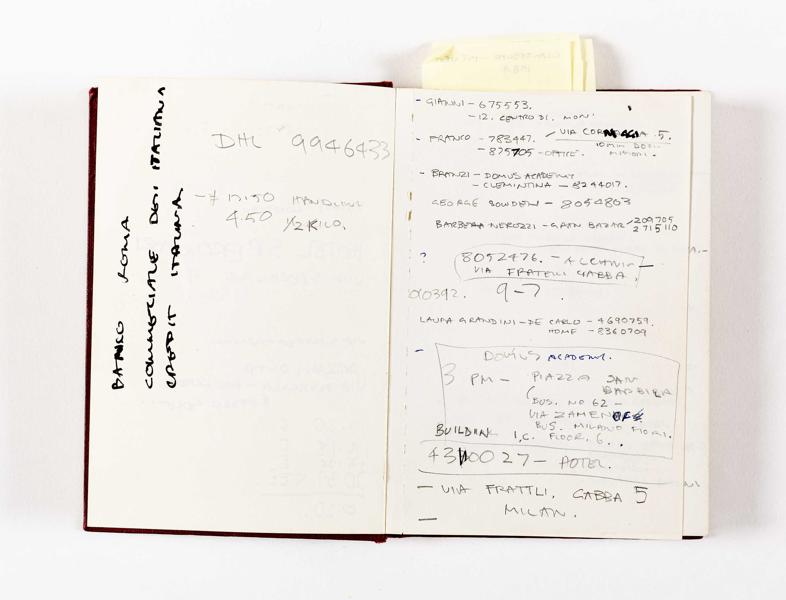 BANCO ROMA
COMMERCIALE DESI ITALIANA
CREDIT ITALINA
DHL 9946433
- £ 17.50 HANDLING
4.50 1/2 KILO.
- GIANNI - 675553.
- 12. CENTRO DI. MON'
- FRANCO - 783447.
VIA 5.
- 875705 - OFFICE.
10 MIN
- BRANZI - DOMUS ACADEMY
- CLEMINTINA - 8244017.
GEORGE SOWDEN - 8054803
BARBERA NEROZZI - GRAN BAZAR
209705
2715110
? 8052476. - ALCHIMIA
VIA FRATELLI GABBA.
9-7.
LAURA GRANDINI - DE CARLO - 4690759.
HOME - 8360709
- DOMUS ACADEMY.
3 PM - PIAZZA SAN
BARBIER
BUS. NO 62 -
VIA
BUS. MILANO FIORI.
BUILDING 1,C. FLOOR, 6..
430027 - POTEL.
- VIA FRATTLI. GABBA 5
MILAN.
-